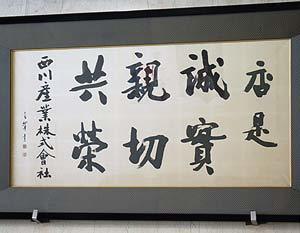 店是
誠實
親切
共榮
西川産業株式會社